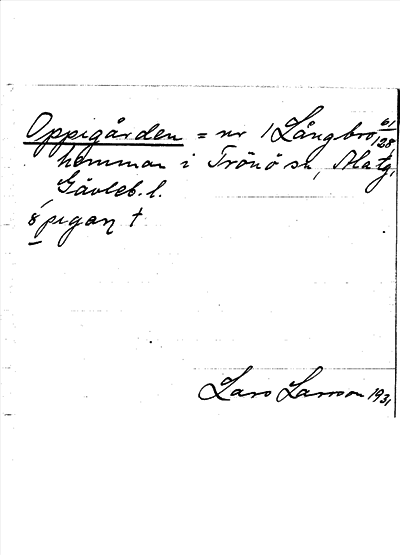 Oppigården = nr 1 Långbro 61/128
hemman i Trönö sn, Matg,
Gävleb. l.
öpigaɳ †
Lars Larsson 1931